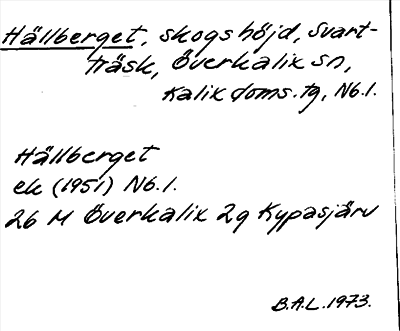 Hällberget, skogshöjd, Svart-
träsk, Överkalix sn,
Kalix doms. tg, Nb.l.
Hällberget
ek (1951) Nb.l.
26 M Överkalix 2g Kypasjärv
B.A.L. 1973.